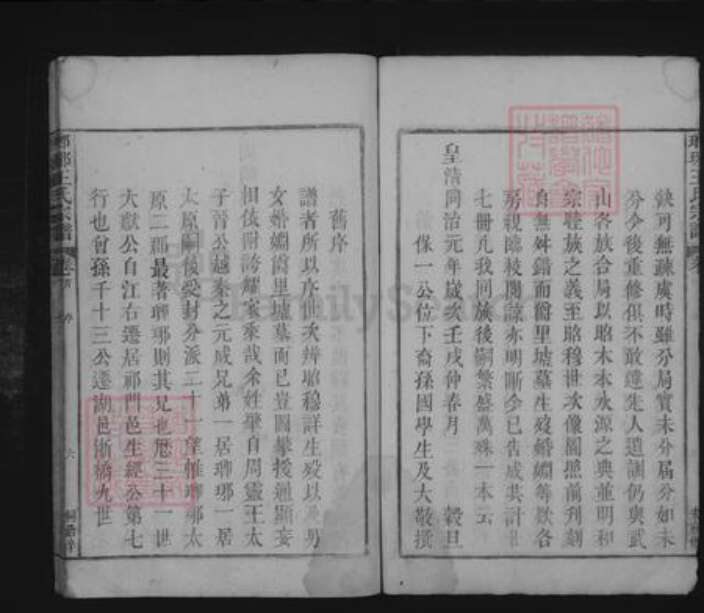 缺可無疎虞時雖分局實未分屆分如未
分今後重修俱不敢違先人遺訓仍與武
山各族合局以昭木本水源之典並明和
宗睦族之義至昭穆世次像圖照前刊刻
自無舛錯而爵里墟墓生歿婚嫺等欵各
房親臨校閱諒亦明晰今已告成共計
七冊凡我同族後嗣繁盛萬殊一本云
皇清同治元年歲次壬戌仲春月 穀旦
保一公位下裔孫國學生及大敬撰
琅琊王氏宗譜
舊序
譜者所以序世次辨昭穆詳生歿以及男
女婚嫺爵里墟墓而已豈圖攀援通顯妄
相依附誇耀家乘哉余姓肇自周靈王太
子晉公越秦之元威兄弟一居瑯琊一居
太原嗣後受封分派二十一望惟瑯琊太
原二郡最著瑯琊則其兄也歷三十一世
大獻公自江右遷居祁門邑生經公第七
行也曾孫千十三公遷湖邑浙橋九世
瑯琊王氏宗譜 卷 序 六